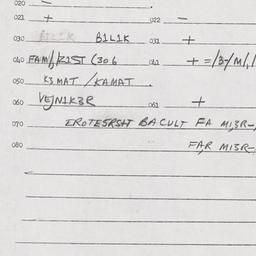 020 —
021 + 022 —
030 B1L1K 031 +
040 FAM/R1ST (306 041 + =/3-/M/,1
050 K3MAT /KAMAT .
060 VEJN1K3R 061 +
070 EROTESRSHT BACULT FA M13R-,
080 FAR M13R-,